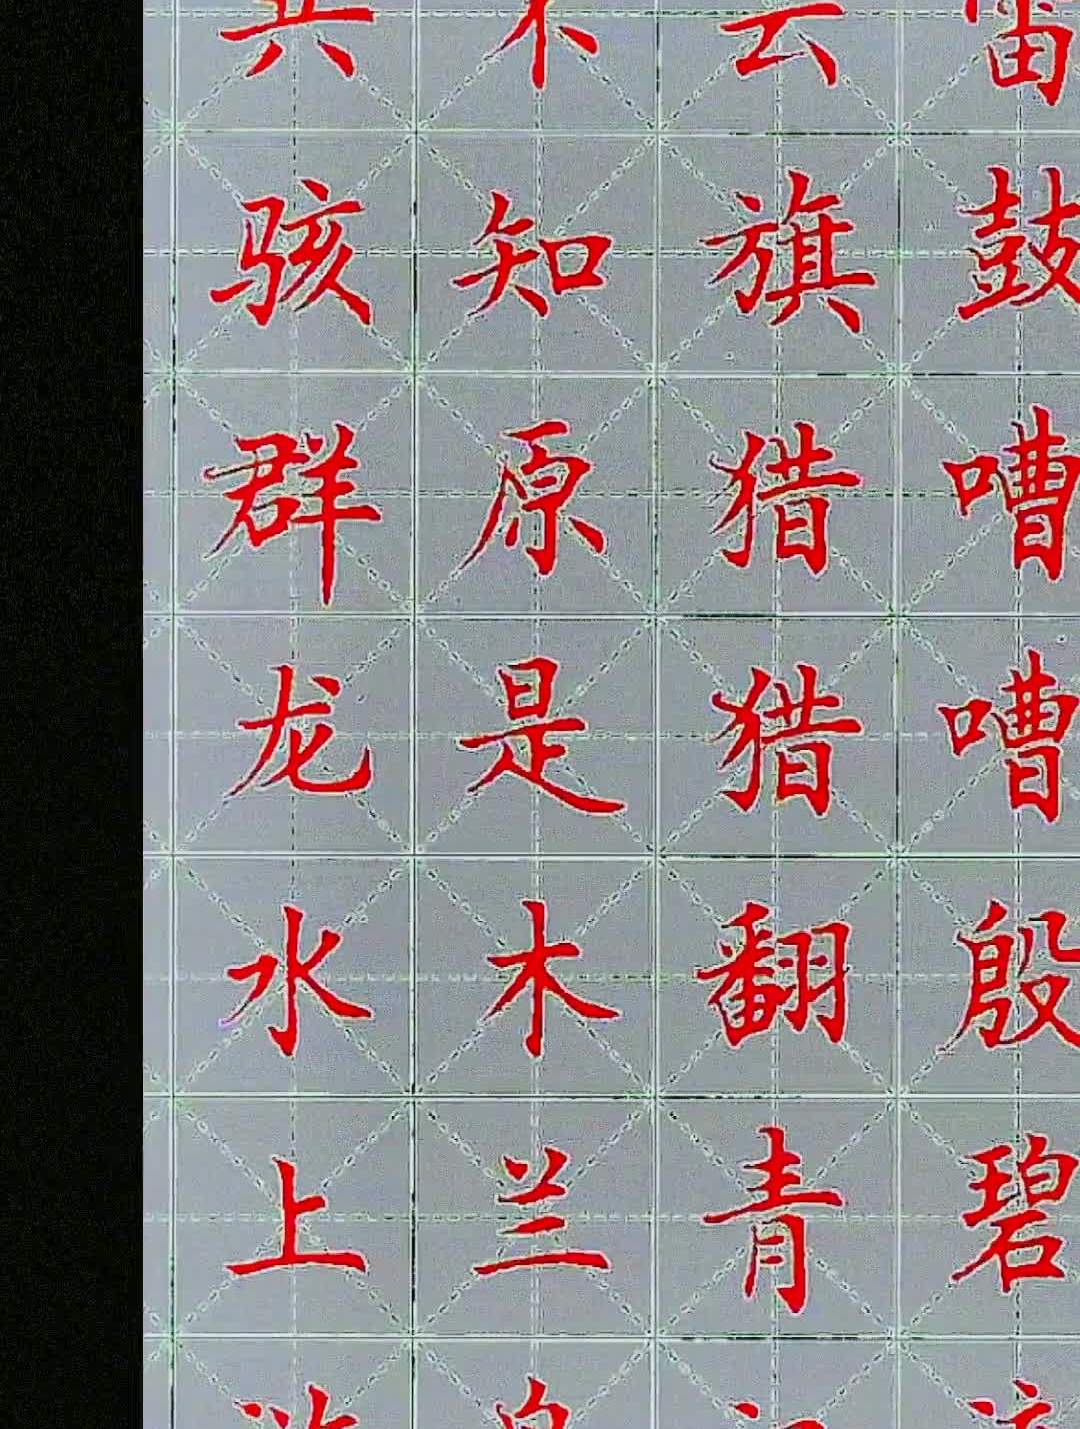 共骇群龙水上
不知原是木兰
云旗猎猎翻青
雷鼓嘈嘈殷碧